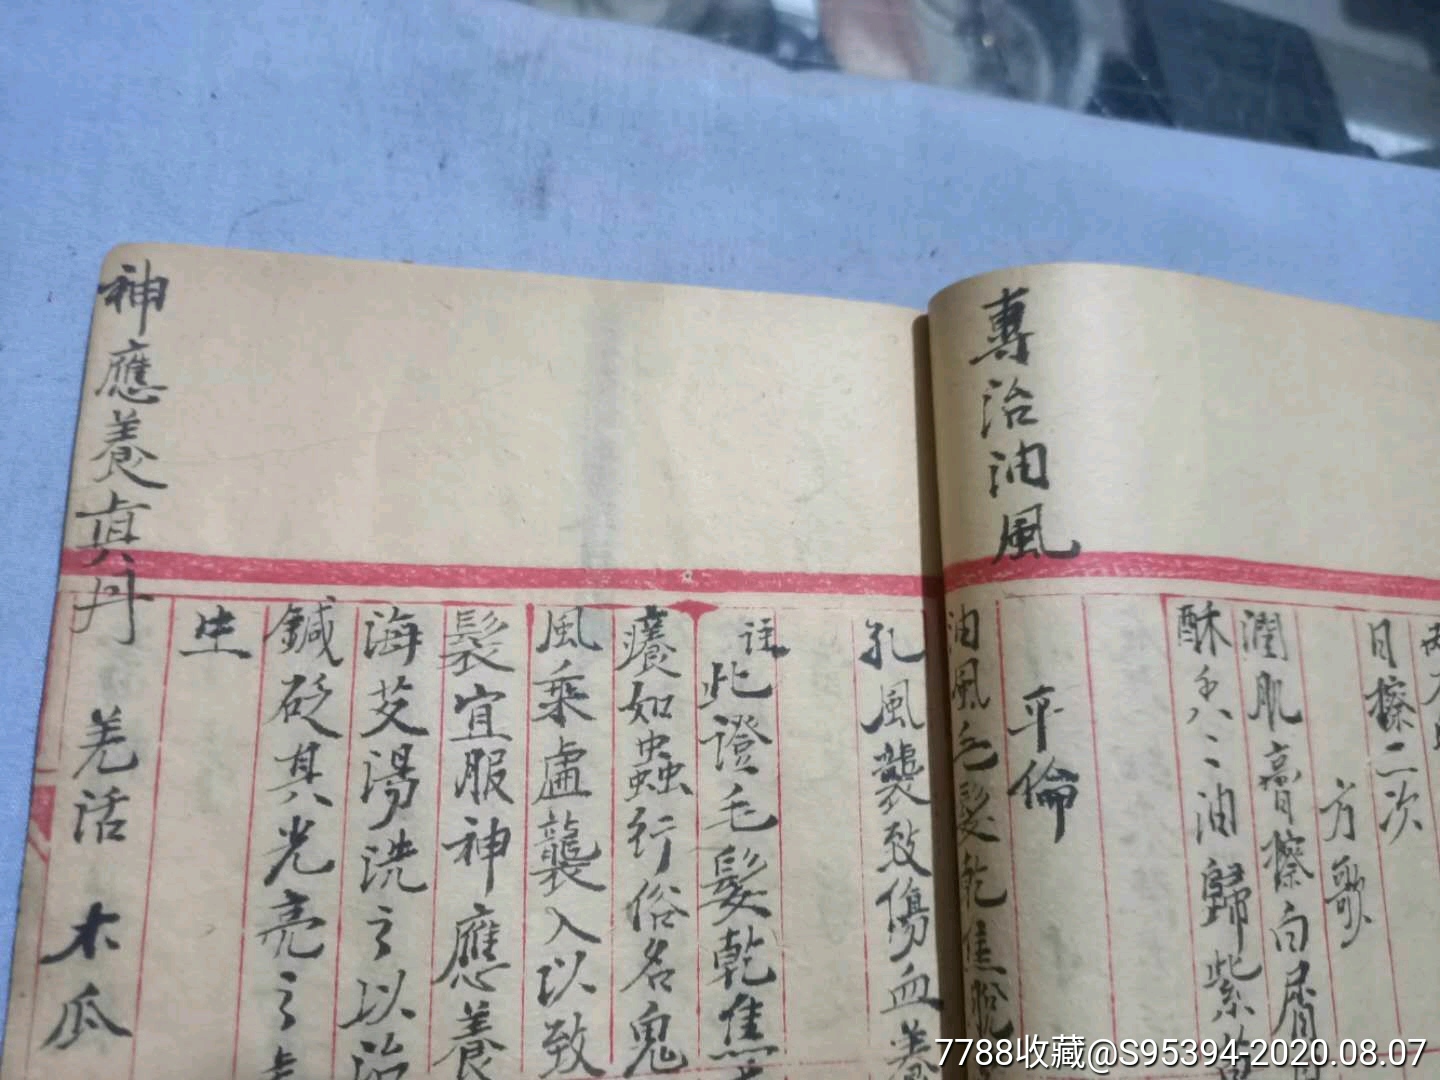 專治油風
日擦二次
方歌
潤肌膏擦白屑
酥香二油歸紫草
平倫
油風毛髮乾焦脫
孔風襲致傷血養
註此證毛髮乾焦
癢如蟲行俗名鬼
風乘虛襲入以致
髮宜服神應養
海艾湯洗之以治
鍼砭其光亮之
生
神應養真丹
羌活 木瓜
7788收藏@S95394-2020.08.07